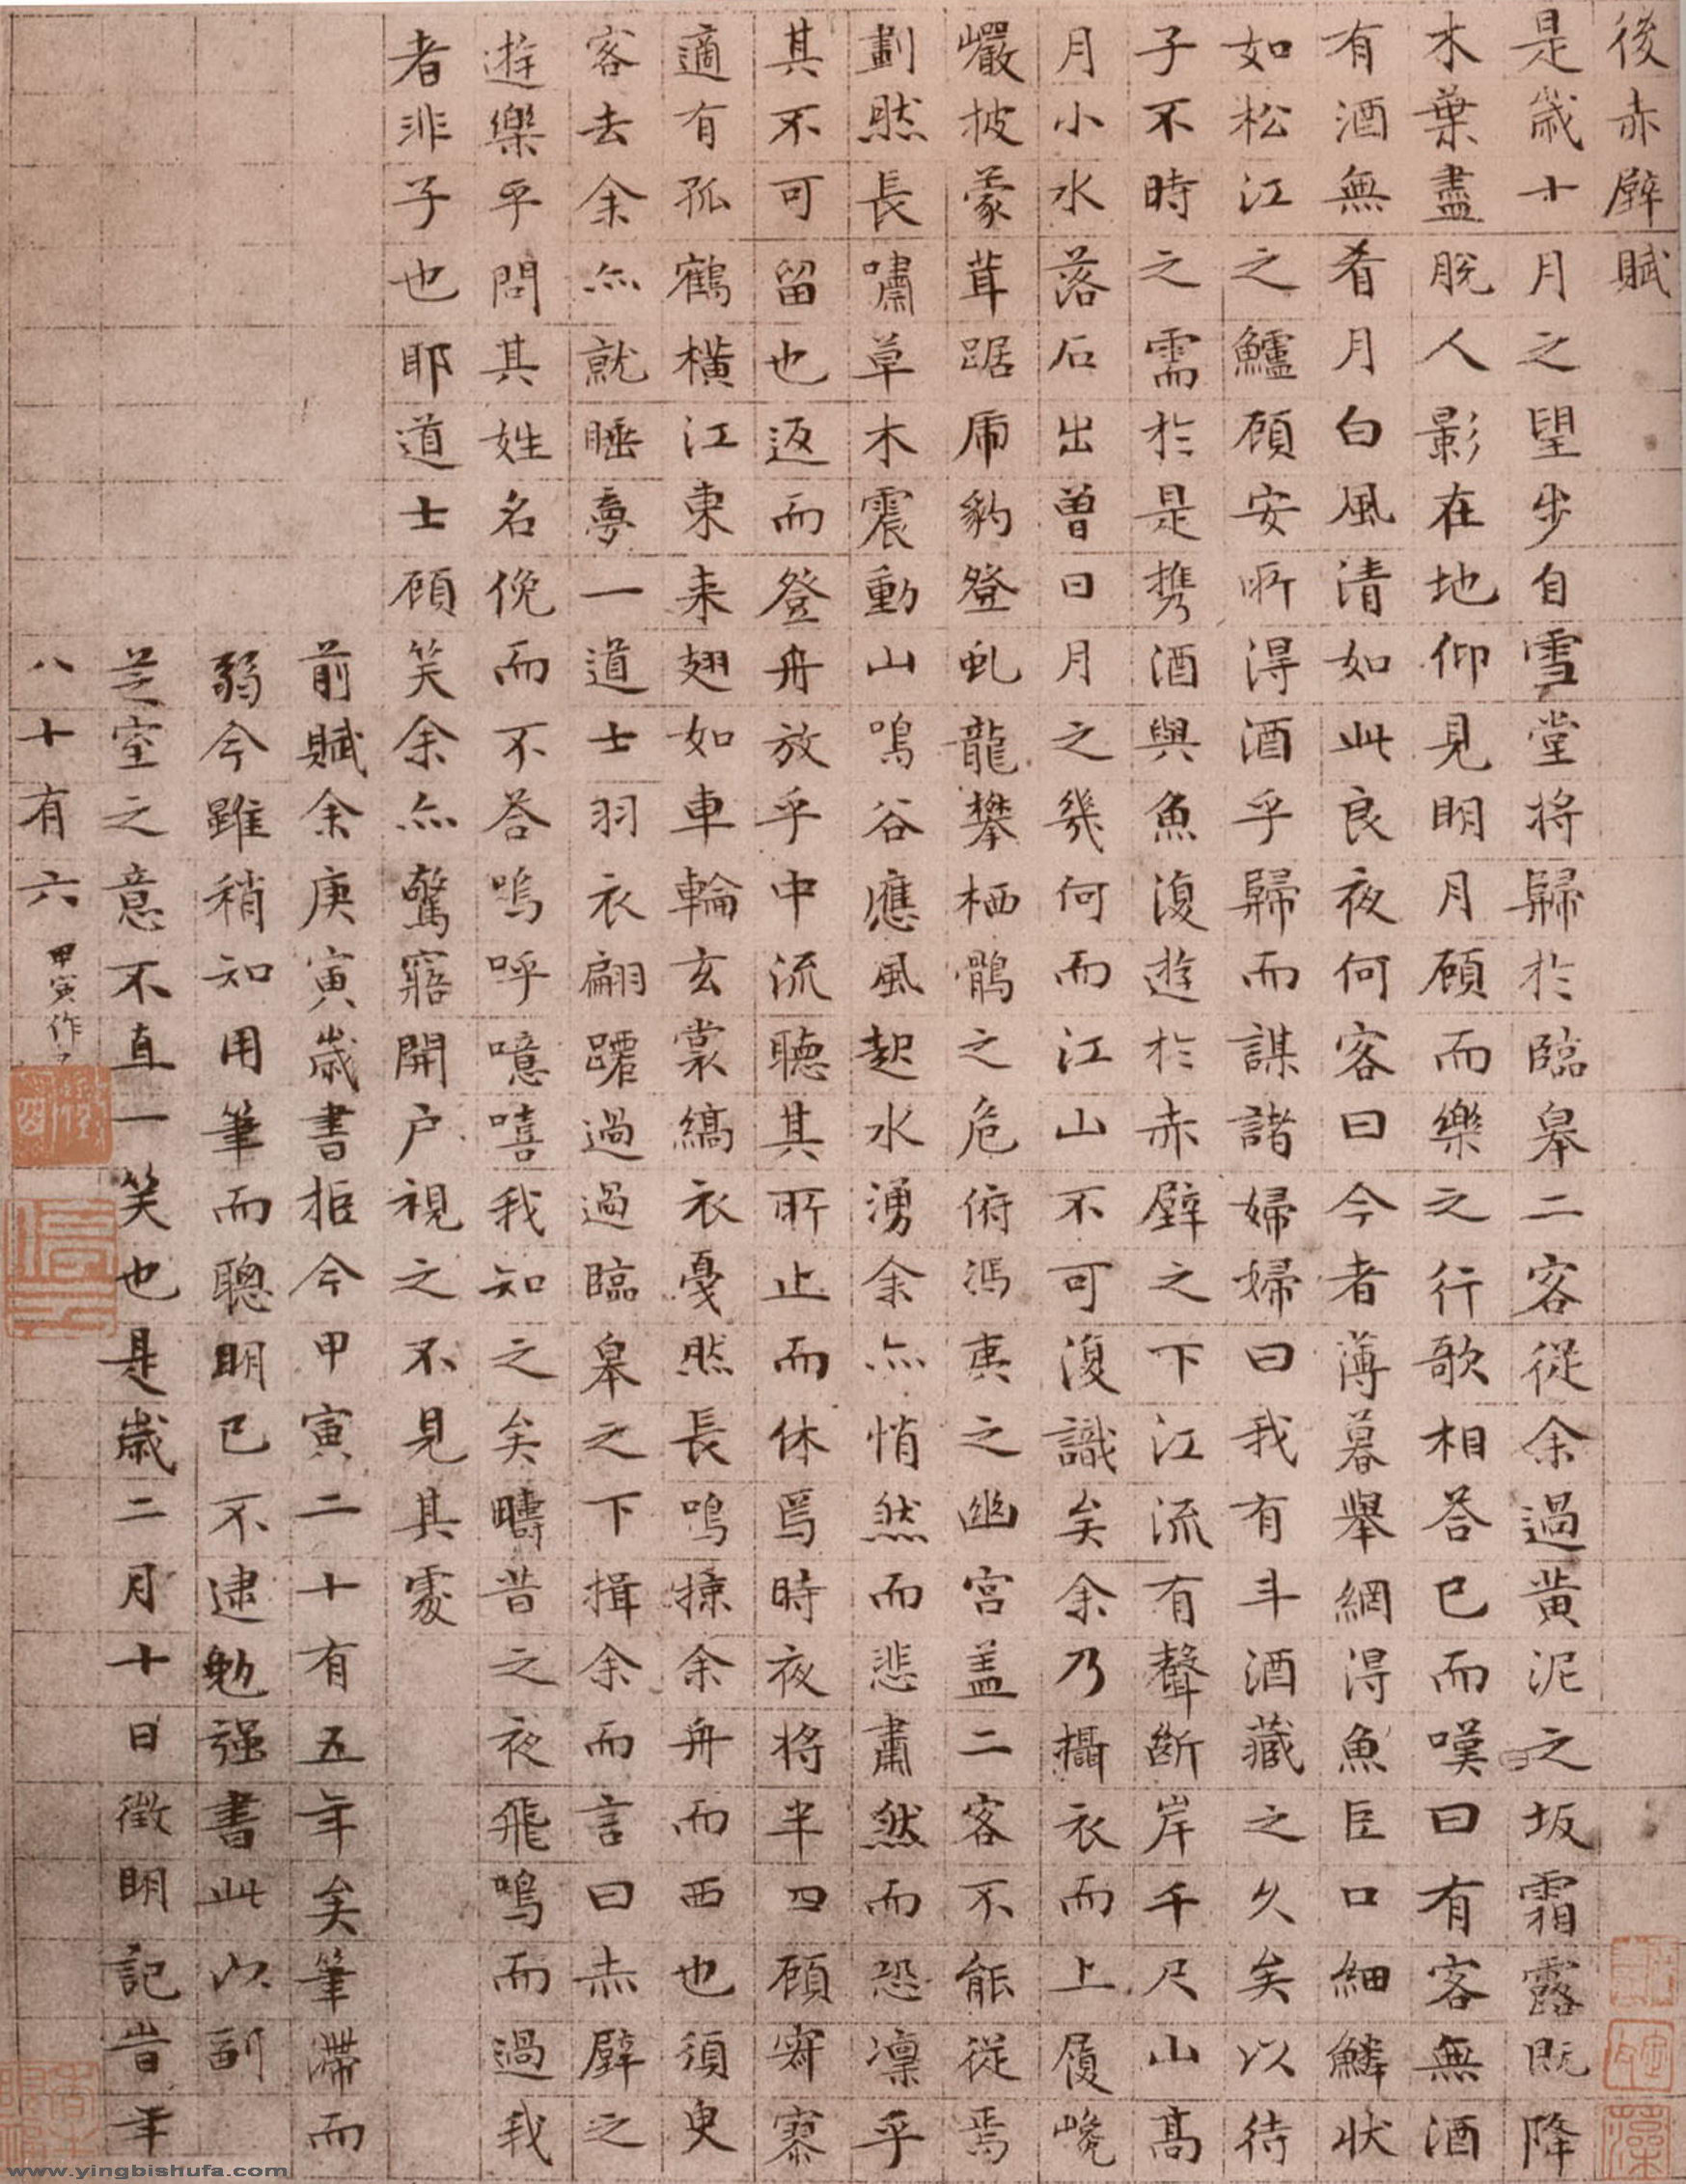 後赤壁賦
是歲十月之望步自雪堂將歸於臨皋二客從余過黃泥之坂霜露既降
木葉盡脫人影在地仰見明月顧而樂之行歌相答已而嘆曰有客無酒
有酒無肴月白風清如此良夜何客曰今者薄暮舉網得魚巨口細鱗狀
如松江之鱸顧安所得酒乎歸而謀諸婦婦曰我有斗酒藏之久矣以待
子不時之需於是攜酒與魚復遊於赤壁之下江流有聲斷岸千尺山高
月小水落石出曾日月之幾何而江山不可復識矣余乃攝衣而上履巉
巖披蒙茸踞虎豹登虬龍攀栖鶻之危俯馮夷之幽宮盖二客不能從焉
劃然長嘯草木震動山鳴谷應風起水湧余亦悄然而悲肅然而恐凜乎
其不可留也返而登舟放乎中流聽其所止而休焉時夜將半四顧寂寥
適有孤鶴橫江東來翅如車輪玄裳縞衣戛然長鳴掠余舟而西也須臾
客去余亦就睡夢一道士羽衣翩躚過過臨皋之下揖余而言曰赤壁之
遊樂乎問其姓名俛而不答嗚呼噫嘻我知之矣疇昔之夜飛鳴而過我
者非子也耶道士顧笑余亦驚寤開户視之不見其處
前賦余庚寅歲書拒今甲寅二十有五年矣筆滯而
弱今雖稍知用筆而聰明已不逮勉强書此以副
芝室之意不直一笑也是歲二月十日徵明記岢年
八十有六 甲寅作
www.yingbishufa.com